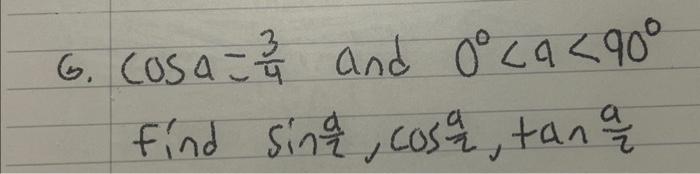 6. cos a = 3/4 and 0° < a < 90°
find sin a/2, cos a/2, tan a/2